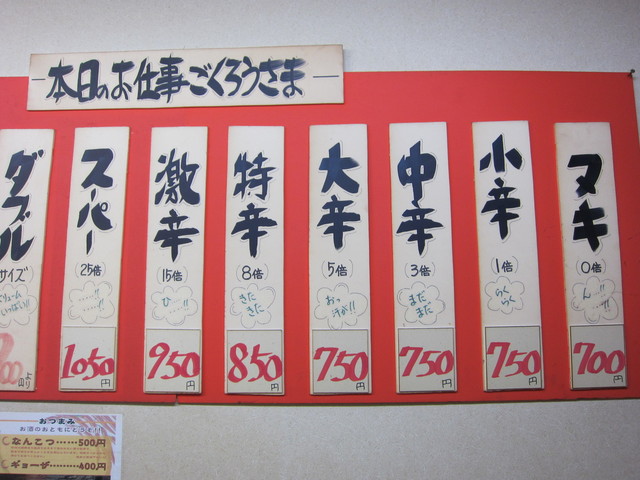 本日のお仕事ごくろうさま
ヌキ
(0倍)
ん…!!
700円
小辛
(1倍)
らくらく
750円
中辛
(3倍)
まだまだ
750円
大辛
(5倍)
おっ汗が!!
750円
特辛
(8倍)
きたきた
850円
激辛
(15倍)
ひ……!!
950円
スーパー
(25倍)
……!!
……!!
1050円
ダブル
サイズ
ボリューム
いっぱい!!
より
おつまみ
お酒のおともにどうぞ!!
なんこつ……500円
ギョーザ………400円